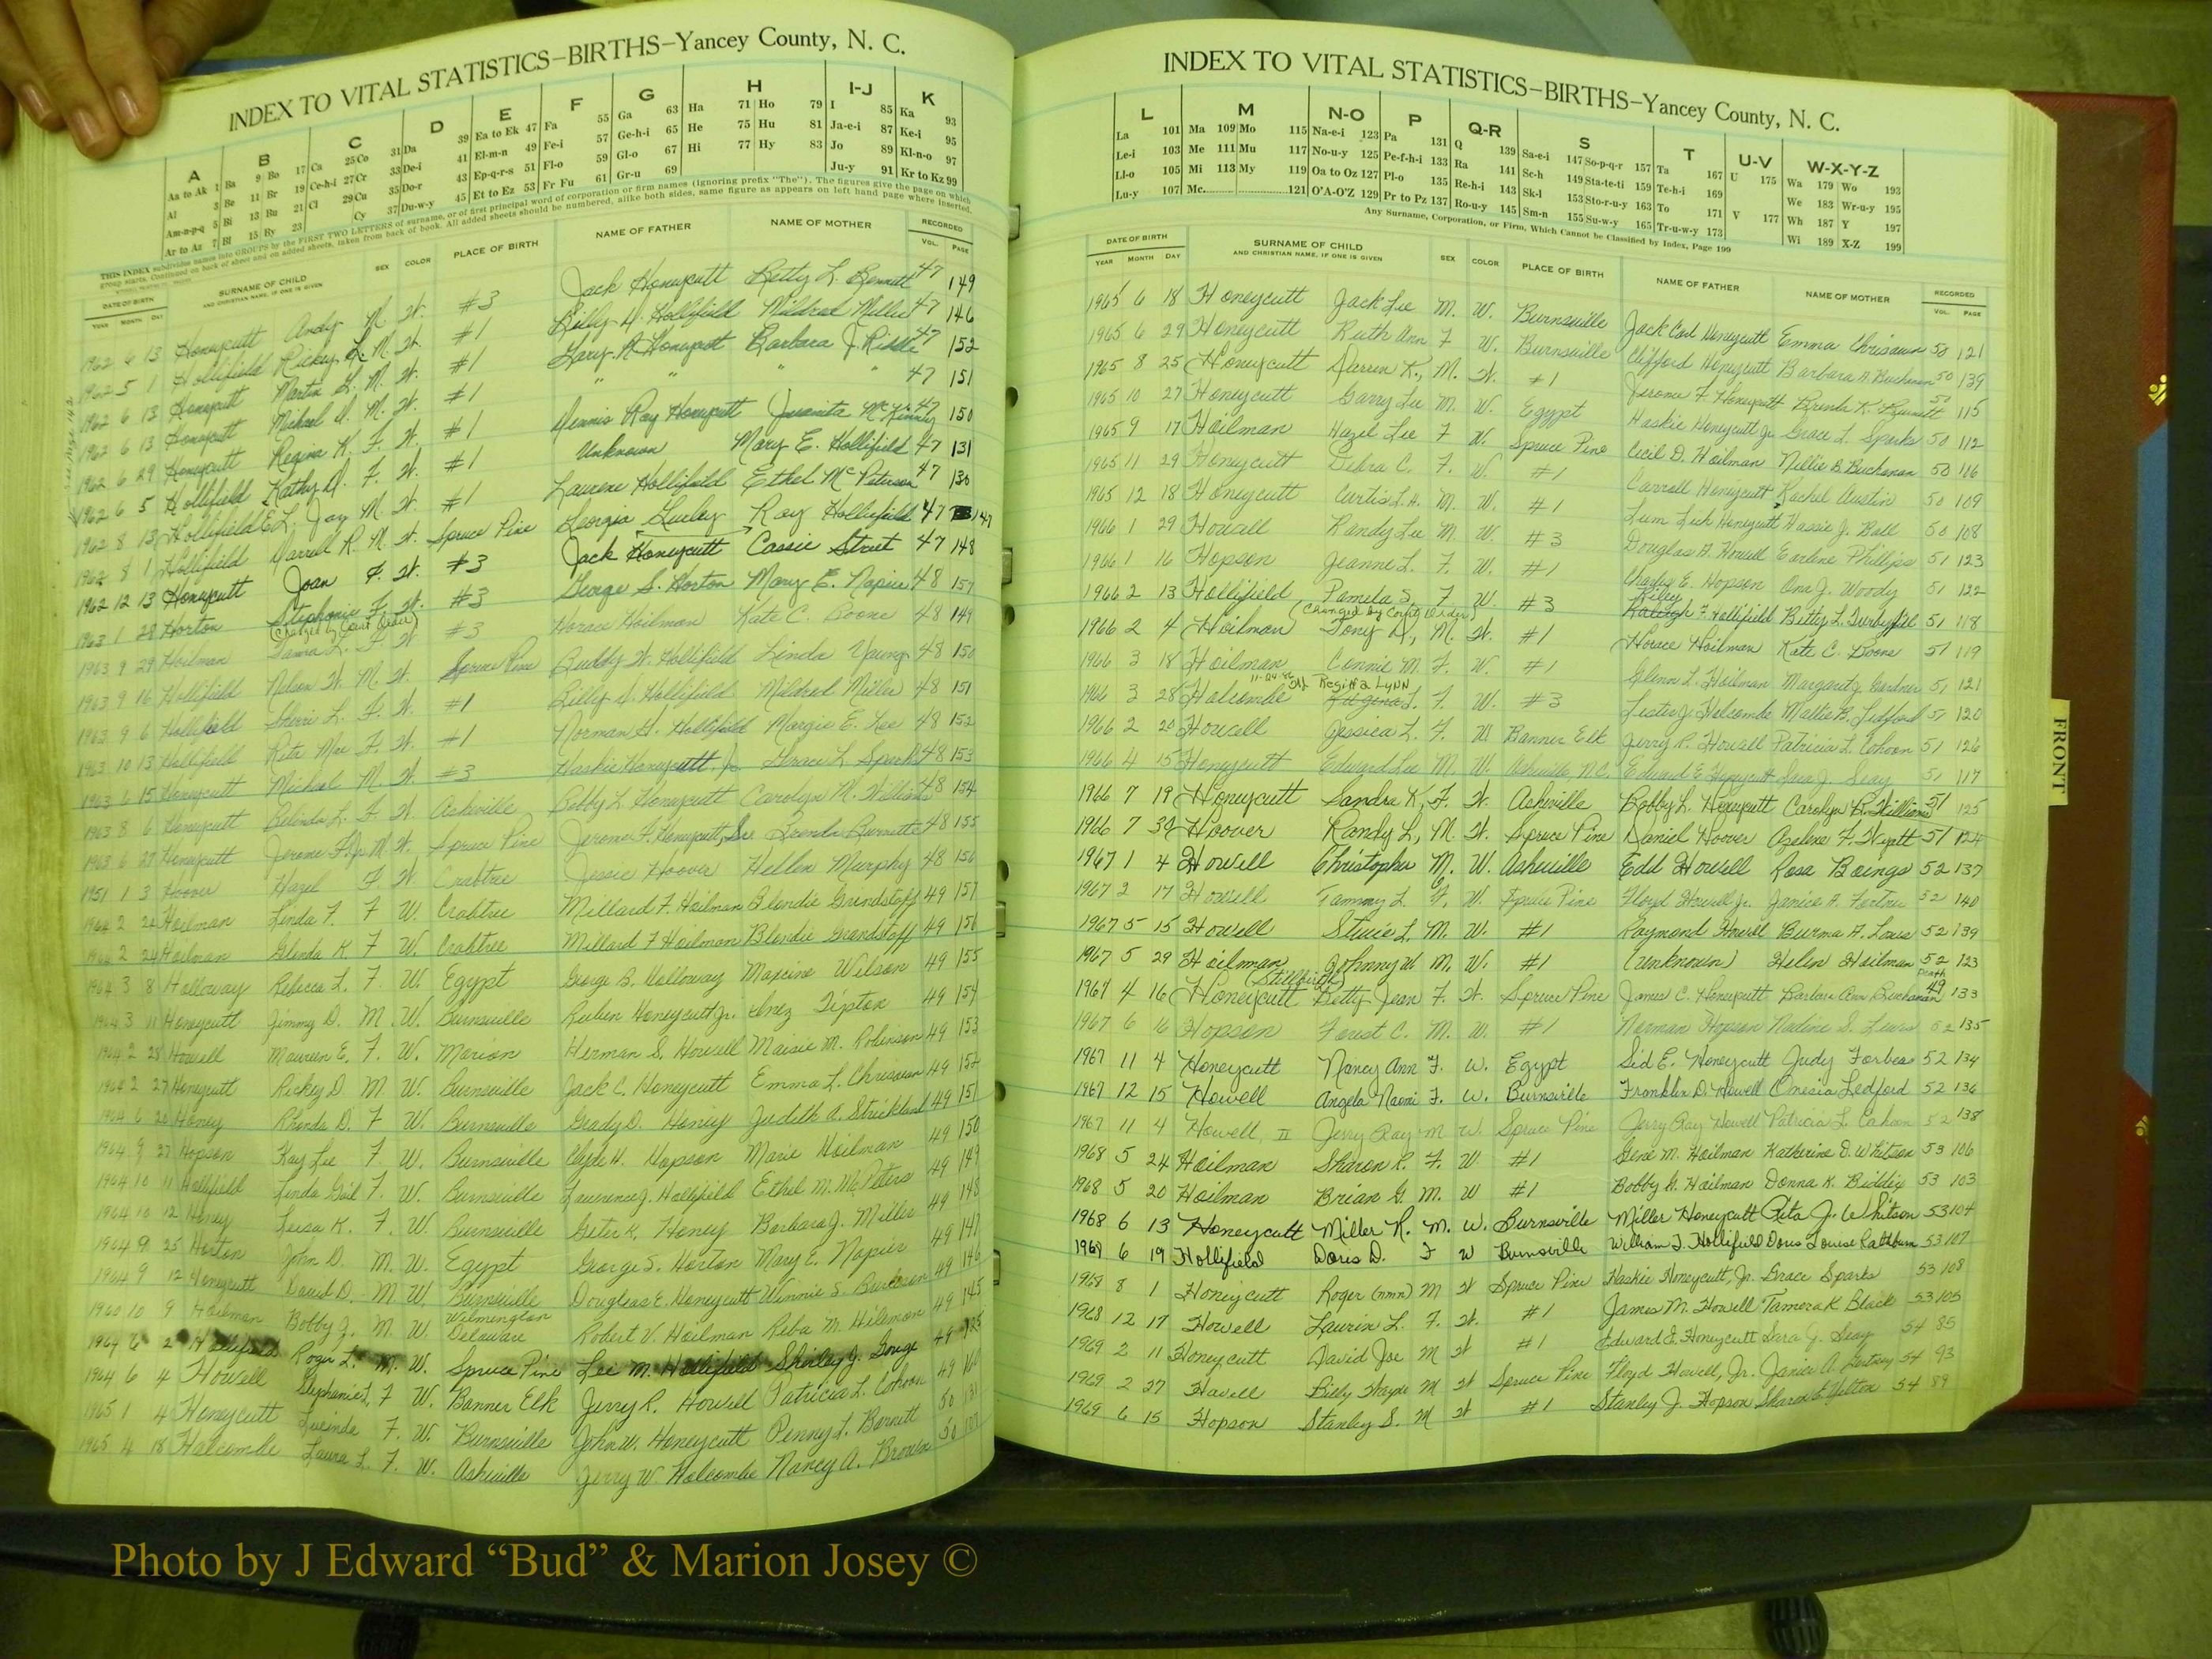 INDEX TO VITAL STATISTICS—BIRTHS—Yancey County, N. C.
A B C D E F G H I-J K
Aa to Ak 1 Ba 9 Bo 17 Ca 25 Co 31 Da 39 Ea to Ek 47 Fa 55 Ga 63 Ha 71 Ho 79 I 85 Ka 93
Al 3 Be 11 Br 19 Ce-h-i 27 Cr 33 De-i 41 El-m-n 49 Fe-i 57 Ge-h-i 65 He 75 Hu 81 Ja-e-i 87 Ke-i 95
Am-n-p-q 5 Bi 13 Bu 21 Cl 29 Cu 35 Do-r 43 Ep-q-r-s 51 Fl-o 59 Gl-o 67 Hi 77 Hy 83 Jo 89 Kl-n-o 97
Ar to Az 7 Bl 15 By 23 Cy 37 Du-w-y 45 Et to Ez 53 Fr Fu 61 Gr-u 69 Ju-y 91 Kr to Kz 99
THIS INDEX subdivides names into GROUPS by the FIRST TWO LETTERS of surname, or of first principal word of corporation or firm names (ignoring prefix "The"). The figures give the page on which
group starts. Continued on back of sheet and on added sheets, taken from back of book. All added sheets should be numbered, alike both sides, same figure as appears on left hand page where inserted.
DATE OF BIRTH SURNAME OF CHILD SEX COLOR PLACE OF BIRTH NAME OF FATHER NAME OF MOTHER RECORDED
YEAR MONTH DAY AND CHRISTIAN NAME, IF ONE IS GIVEN VOL. PAGE
1962 6 13 Honeycutt Andy M. W. #3 Jack Honeycutt Betty L. Bennett 47 149
1962 5 1 Hollifield Ricky L. M. W. #1 Billy H. Hollifield Mildred Miller 47 146
1962 6 13 Honeycutt Martin L. M. W. #1 Lary R. Honeycutt Barbara J. Riddle 47 152
1962 6 13 Honeycutt Michael D. M. W. #1 " " " " 47 151
1962 6 29 Honeycutt Regina K. F. W. #1 Dennis Ray Honeycutt Juanita McKinney 47 150
1962 6 5 Hollifield Kathy D. F. W. #1 Unknown Mary E. Hollifield 47 131
1962 8 13 Hollifield E.L. Jay M. W. #1 Laurene Hollifield Ethel McPeterson 47 130
1962 8 1 Hollifield Darrell R. M. W. Spruce Pine Georgia Roy Hollifield 47 147
1962 12 13 Honeycutt Joan F. W. #3 Jack Honeycutt Cassie Street 47 148
1963 1 28 Horton Stephanie F. W. #3 George S. Horton Mary E. Napier 48 157
(Changed by Court Order)
1963 9 29 Hoilman L. F. W. #3 Horace Hoilman Kate C. Boone 48 149
1963 9 16 Hollifield Nelson W. M. W. Spruce Pine Buddy W. Hollifield Linda Young 48 150
1963 9 6 Hollifield Sherri L. F. W. #1 Billy H. Hollifield Mildred Miller 48 151
1963 10 13 Hollifield Rita Mae F. W. #1 Norman H. Hollifield Margie E. Lee 48 152
1963 6 15 Honeycutt Michael M. W. #3 Haskie Honeycutt, Jr. Grace L. Sparks 48 153
1963 8 6 Honeycutt Belinda L. F. W. Asheville Bobby L. Honeycutt Carolyn M. Williams 48 154
1963 6 27 Honeycutt Jerome F. Jr. M. W. Spruce Pine Jerome F. Honeycutt, Sr. Brenda Burnette 48 155
1951 1 3 Hoover Hazel F. W. Crabtree Jessie Hoover Hellen Murphy 48 156
1964 2 24 Hoilman Linda F. F W. Crabtree Millard F. Hoilman Blondie Grindstaff 49 157
1964 2 24 Hoilman Glenda K F W. Crabtree Millard F Hoilman Blondie Grandstaff 49 156
1964 3 8 Holloway Rebecca L. F. W. Egypt George B. Holloway Maxine Wilson 49 155
1964 3 11 Honeycutt Jimmy D. M. W. Burnsville Reuben Honeycutt Jr. Inez Tipton 49 154
1964 2 28 Howell Maureen E. F. W. Marion Herman S. Howell Maisie M. Robinson 49 153
1964 2 27 Honeycutt Ricky D M W. Burnsville Jack C. Honeycutt Emma L. Chrisawn 49 152
1964 6 20 Honey Rhonda D. F W. Burnsville Grady D. Honey Judith A. Strickland 49 151
1964 9 27 Hopson Kay Lee F W. Burnsville Clyde H. Hopson Marie Hoilman 49 150
1964 10 11 Hollifield Linda Gail F. W. Burnsville Lawrence J. Hollifield Ethel M. McPeters 49 149
1964 10 12 Honey Leisa K. F. W. Burnsville Geter K. Honey Barbara J. Miller 49 148
1964 9 25 Horton John D. M. W. Egypt George S. Horton Mary E. Napier 49 147
1964 9 12 Honeycutt David D. M W. Burnsville Douglas E. Honeycutt Winnie S. Burleson 49 146
1960 10 9 Hoilman Bobby J. M. W. Wilmington Delaware Robert V. Hoilman Reba M. Hileman 49 145
1964 6 2 Hollifield Roger L. M. W. Spruce Pine Lee M. Hollifield Shirley J. Gouge 49
1964 6 4 Howell Stephanie L. F W. Banner Elk Jerry R. Howell Patricia L. Cohoon 49
1965 1 4 Honeycutt Lucinda F. W. Burnsville John W. Honeycutt Penny L. Barnett 50
1965 4 18 Holcombe Laura L. F. W. Asheville Jerry W. Holcombe Nancy A. Brown 50
INDEX TO VITAL STATISTICS—BIRTHS—Yancey County, N. C.
L M N-O P Q-R S T U-V W-X-Y-Z
La 101 Ma 109 Mo 115 Na-e-i 123 Pa 131 Q 139 Sa-e-i 147 So-p-q-r 157 Ta 167 U 175 Wa 179 Wo 193
Le-i 103 Me 111 Mu 117 No-u-y 125 Pe-f-h-i 133 Ra 141 Sc-h 149 Sta-te-ti 159 Te-h-i 169 We 183 Wr-u-y 195
Ll-o 105 Mi 113 My 119 Oa to Oz 127 Pl-o 135 Re-h-i 143 Sk-l 153 Sto-r-u-y 163 To 171 V 177 Wh 187 Y 197
Lu-y 107 Mc 121 O'A-O'Z 129 Pr to Pz 137 Ro-u-y 145 Sm-n 155 Su-w-y 165 Tr-u-w-y 173 Wi 189 X-Z 199
Any Surname, Corporation, or Firm, Which Cannot be Classified by Index, Page 199
DATE OF BIRTH SURNAME OF CHILD SEX COLOR PLACE OF BIRTH NAME OF FATHER NAME OF MOTHER RECORDED
YEAR MONTH DAY AND CHRISTIAN NAME, IF ONE IS GIVEN VOL. PAGE
1965 6 18 Honeycutt Jack Lee M. W. Burnsville Jack Earl Honeycutt Emma Chrisawn 50 121
1965 6 29 Honeycutt Ruth Ann F W. Burnsville Clifford Honeycutt Barbara A. Buchanan 50 139
1965 8 25 Honeycutt Darren K., M. W. #1 Jerome F. Honeycutt Brenda K. Burnett 50 115
1965 10 27 Honeycutt Garry Lee M. W. Egypt Haskie Honeycutt Jr. Grace L. Sparks 50 112
1965 9 17 Hoilman Hazel Lee F W. Spruce Pine Cecil D. Hoilman Nellie B. Buchanan 50 116
1965 11 29 Honeycutt Debra C. F. W. #1 Carroll Honeycutt Rachel Austin 50 109
1965 12 18 Honeycutt Curtis L.H. M. W. #1 Lum Lish Honeycutt Hassie J. Ball 50 108
1966 1 29 Howell Randy Lee M. W. #3 Douglas A. Howell Earlene Phillips 51 123
1966 1 16 Hopson Jeanne L. F. W. #1 Charles E. Hopson Ona J. Woody 51 122
1966 2 13 Hollifield Pamela S. F W. #3 Riley Raleigh F. Hollifield Betty L. Turbyfill 51 118
(Changed by Court Order)
1966 2 4 Hoilman Tony D., M. W. #1 Horace Hoilman Kate C. Boone 51 119
1966 3 18 Hoilman Connie M. F. W. #1 Glenn L. Hoilman Margaret J. Gardner 51 121
Regina Lynn
1966 3 28 Holcombe L. F. W. #3 Lester J. Holcombe Mattie B. Ledford 51 120
1966 2 20 Howell Jessica L. F. W Banner Elk Jerry R. Howell Patricia L. Cohoon 51 126
1966 4 15 Honeycutt Edward Lee M. W. Asheville N.C. Edward E. Honeycutt Sara J. Seay 51 117
1966 7 19 Honeycutt Sandra K., F. W. Asheville Bobby L. Honeycutt Carolyn R. Williams 51 125
1966 7 30 Hoover Randy L., M. W. Spruce Pine Daniel Hoover Azalene F. Hyatt 51 124
1967 1 4 Howell Christopher M. W. Asheville Edd Howell Rosa Boings 52 137
1967 2 17 Howell Tammy L. F. W. Spruce Pine Floyd Howell Jr. Janice A. 52 140
1967 5 15 Howell Stevie L. M. W. #1 Raymond Howell Burma A. Lewis 52 139
1967 5 29 Hoilman Johnny W. M. W. #1 (unknown) Helen Hoilman 52 123
(Stillbirth) Death
1967 4 16 Honeycutt Betty Jean F. W. Spruce Pine James C. Honeycutt Barbara Ann Buchanan 49 133
1967 6 16 Hopson Forest C. M. W. #1 Norman Hopson Nadine S. Lewis 52 135
1967 11 4 Honeycutt Nancy Ann F. W. Egypt Sid E. Honeycutt Judy Forbes 52 134
1967 12 15 Howell Angela Naomi F. W. Burnsville Franklin D. Howell Omesia Ledford 52 136
1967 11 4 Howell, II Jerry Ray M W. Spruce Pine Jerry Ray Howell Patricia L. Cahoon 52 138
1968 5 24 Hoilman Sharon R. F. W #1 Gene M. Hoilman Katherine D. Whitson 53 106
1968 5 20 Hoilman Brian G. M. W #1 Bobby G. Hoilman Donna K. Biddix 53 103
1968 6 13 Honeycutt Miller R. M. W. Burnsville Miller Honeycutt Rita J. Whitson 53 104
1968 6 19 Hollifield Doris D. F W Burnsville William T. Hollifield Doris Louise Rathburn 53 107
1968 8 1 Honeycutt Roger (nmn) M W Spruce Pine Haskie Honeycutt, Jr. Grace Sparks 53 108
1968 12 17 Howell Laurin L. F. W. #1 James M. Howell Tamera K Black 53 105
1969 2 11 Honeycutt David Joe M W #1 Edward E. Honeycutt Sara J. Seay 54 85
1969 2 27 Howell Billy Wayne M W Spruce Pine Floyd Howell, Jr. Janice A. 54 93
1969 6 15 Hopson Stanley S. M W #1 Stanley J. Hopson Sharon Hilton 54 89
FRONT
Photo by J Edward “Bud” & Marion Josey ©